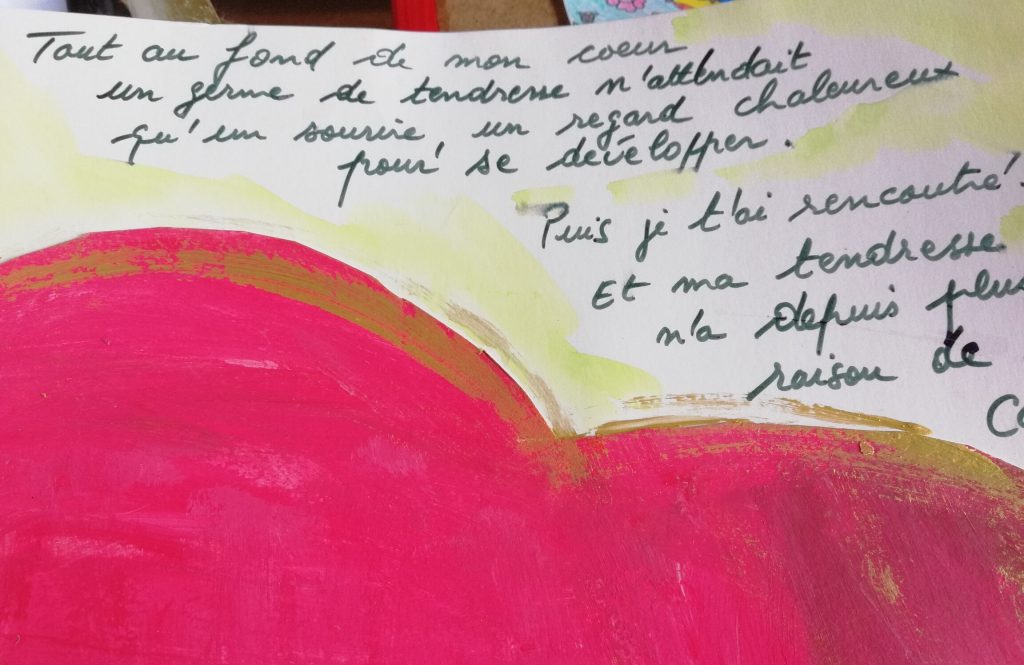 Tout au fond de mon coeur
un germe de tendresse n'attendait
qu'un sourire, un regard chaleureux
pour se développer.
Puis je t'ai rencontré.
Et ma tendresse
n'a depuis plus
raison de